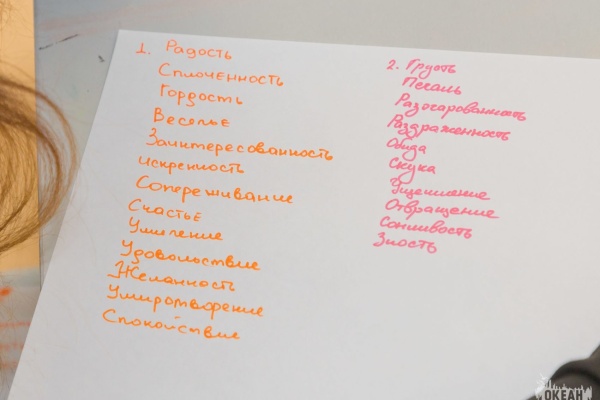 1. Радость
Сплоченность
Гордость
Веселье
Заинтересованность
искренность
Сопереживание
Счастье
Умиление
Удовольствие
Желанность
Умиротворение
Спокойствие
2. Грусть
Печаль
Разочарованность
Раздраженность
Обида
Скука
Ущемление
Отвращение
Сонливость
Злость
ОКЕАН